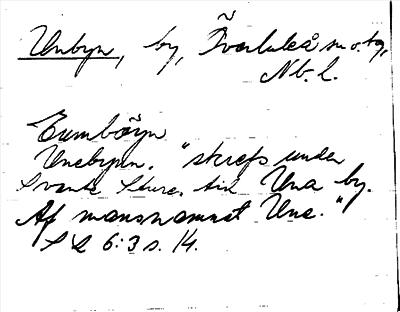 Unbyn, by, Överluleå sn o. tg,
Nb. l.
Eumböyn
Unebyen. "skrefs under
Svante Stures tid Una by.
Af mansnamnet Une."
SL 6:3 s. 14.